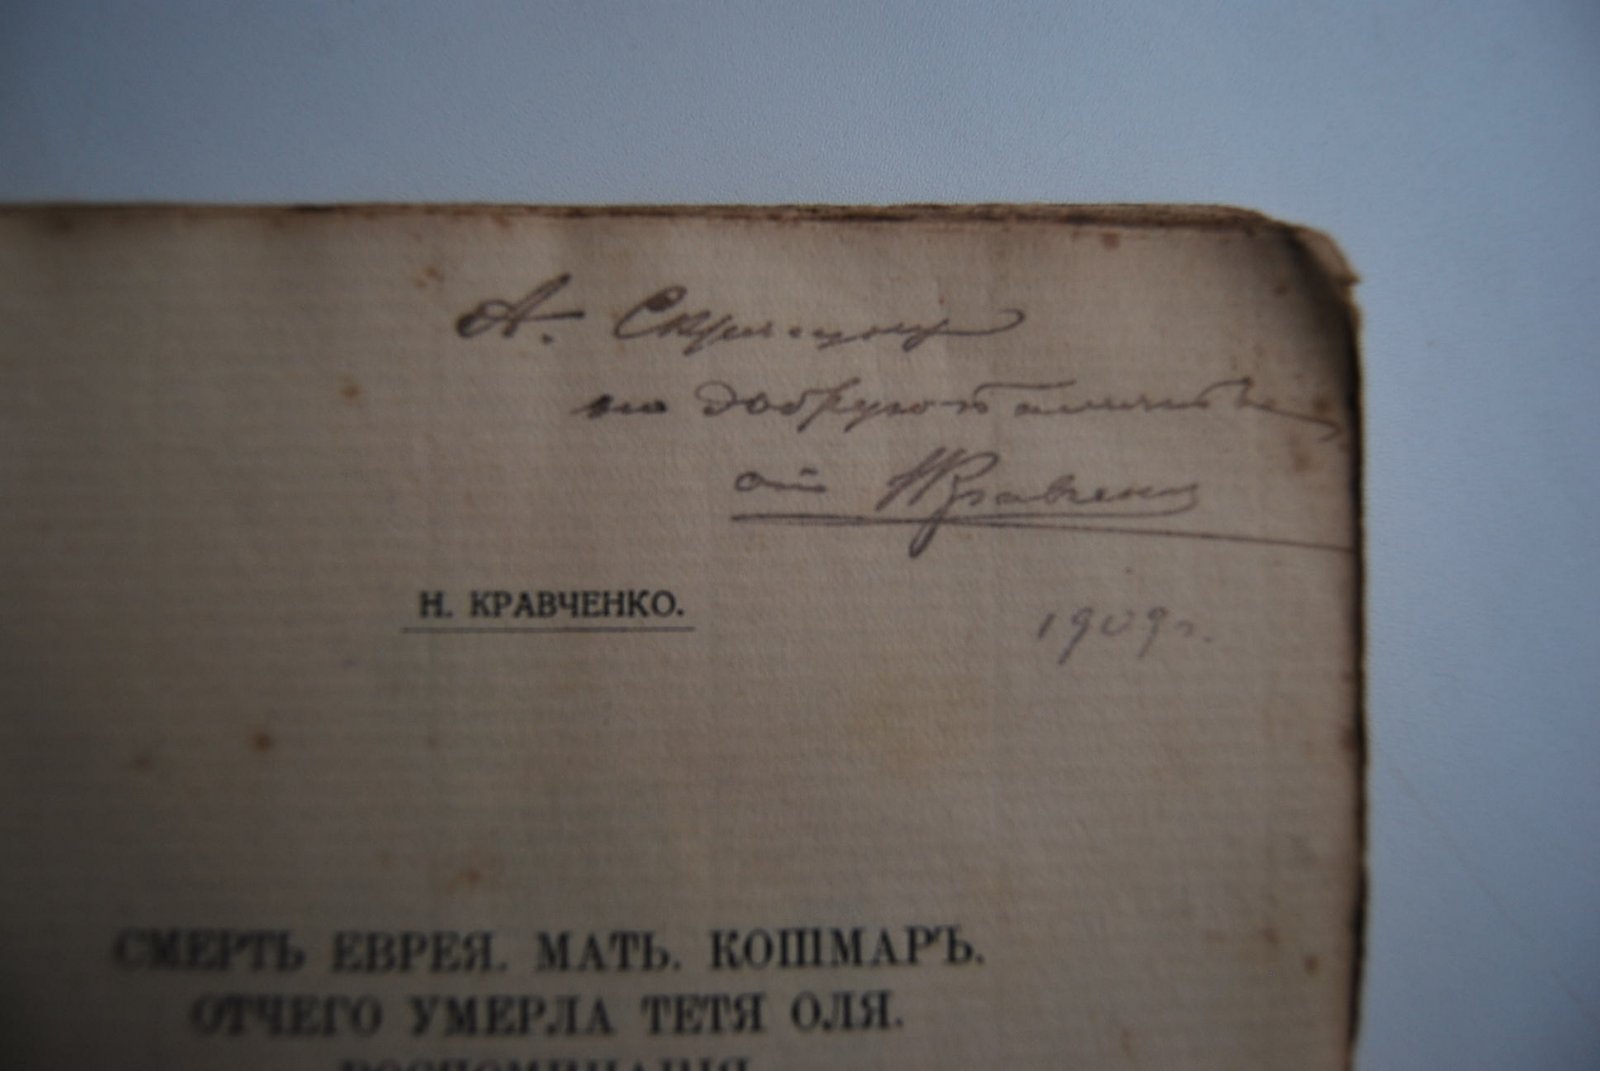 А.
на добрую память
от Н Кравченко
1909 г.
Н. КРАВЧЕНКО.
СМЕРТЬ ЕВРЕЯ. МАТЬ. КОШМАРЪ.
ОТЧЕГО УМЕРЛА ТЕТЯ ОЛЯ.
ВОСПОМИНАНІЯ